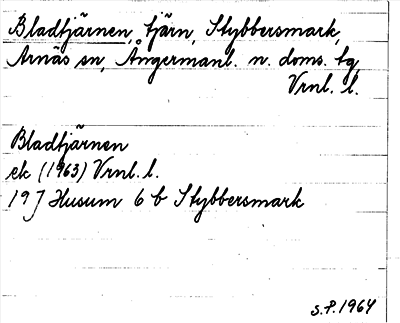 Bladtjärnen, tjärn, Stybbersmark,
Arnäs sn, Ångermanl. n. doms. tg,
Vrnl. l.
Bladtjärnen
ek (1963) Vrnl. l.
19 J Husum 6 b Stybbersmark
S.P. 1964